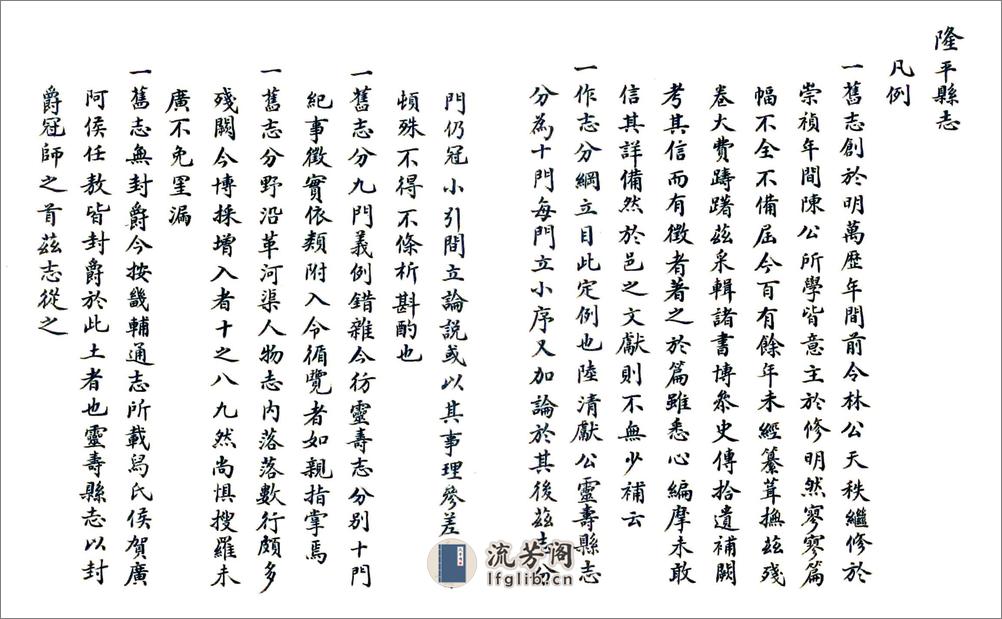 隆平縣志
凡例
一舊志創於明萬歷年間前令林公天秩繼修於
崇禎年間陳公所學皆意主於修明然寥寥篇
幅不全不備屈今百有餘年未經纂葺撫茲殘
卷大費躊躇茲采輯諸書博叅史傳拾遺補闕
考其信而有徵者著之於篇雖悉心編摩未敢
信其詳備然於邑之文獻則不無少補云
一作志分綱立目此定例也陸清獻公靈壽縣志
分為十門每門立小序又加論於其後茲志分
門仍冠小引間立論説或以其事理參差
頓殊不得不條析斟酌也
一舊志分九門義例錯雜今彷靈壽志分別十門
紀事徵實依類附入令循覽者如親指掌焉
一舊志分野沿革河渠人物志內落落數行頗多
殘闕今博採增入者十之八九然尚惧搜羅未
廣不免罣漏
一舊志無封爵今按畿輔通志所載舄氏侯賀廣
阿侯任敖皆封爵於此土者也靈壽縣志以封
爵冠師之首茲志從之
流芳阁
lfglib.cn